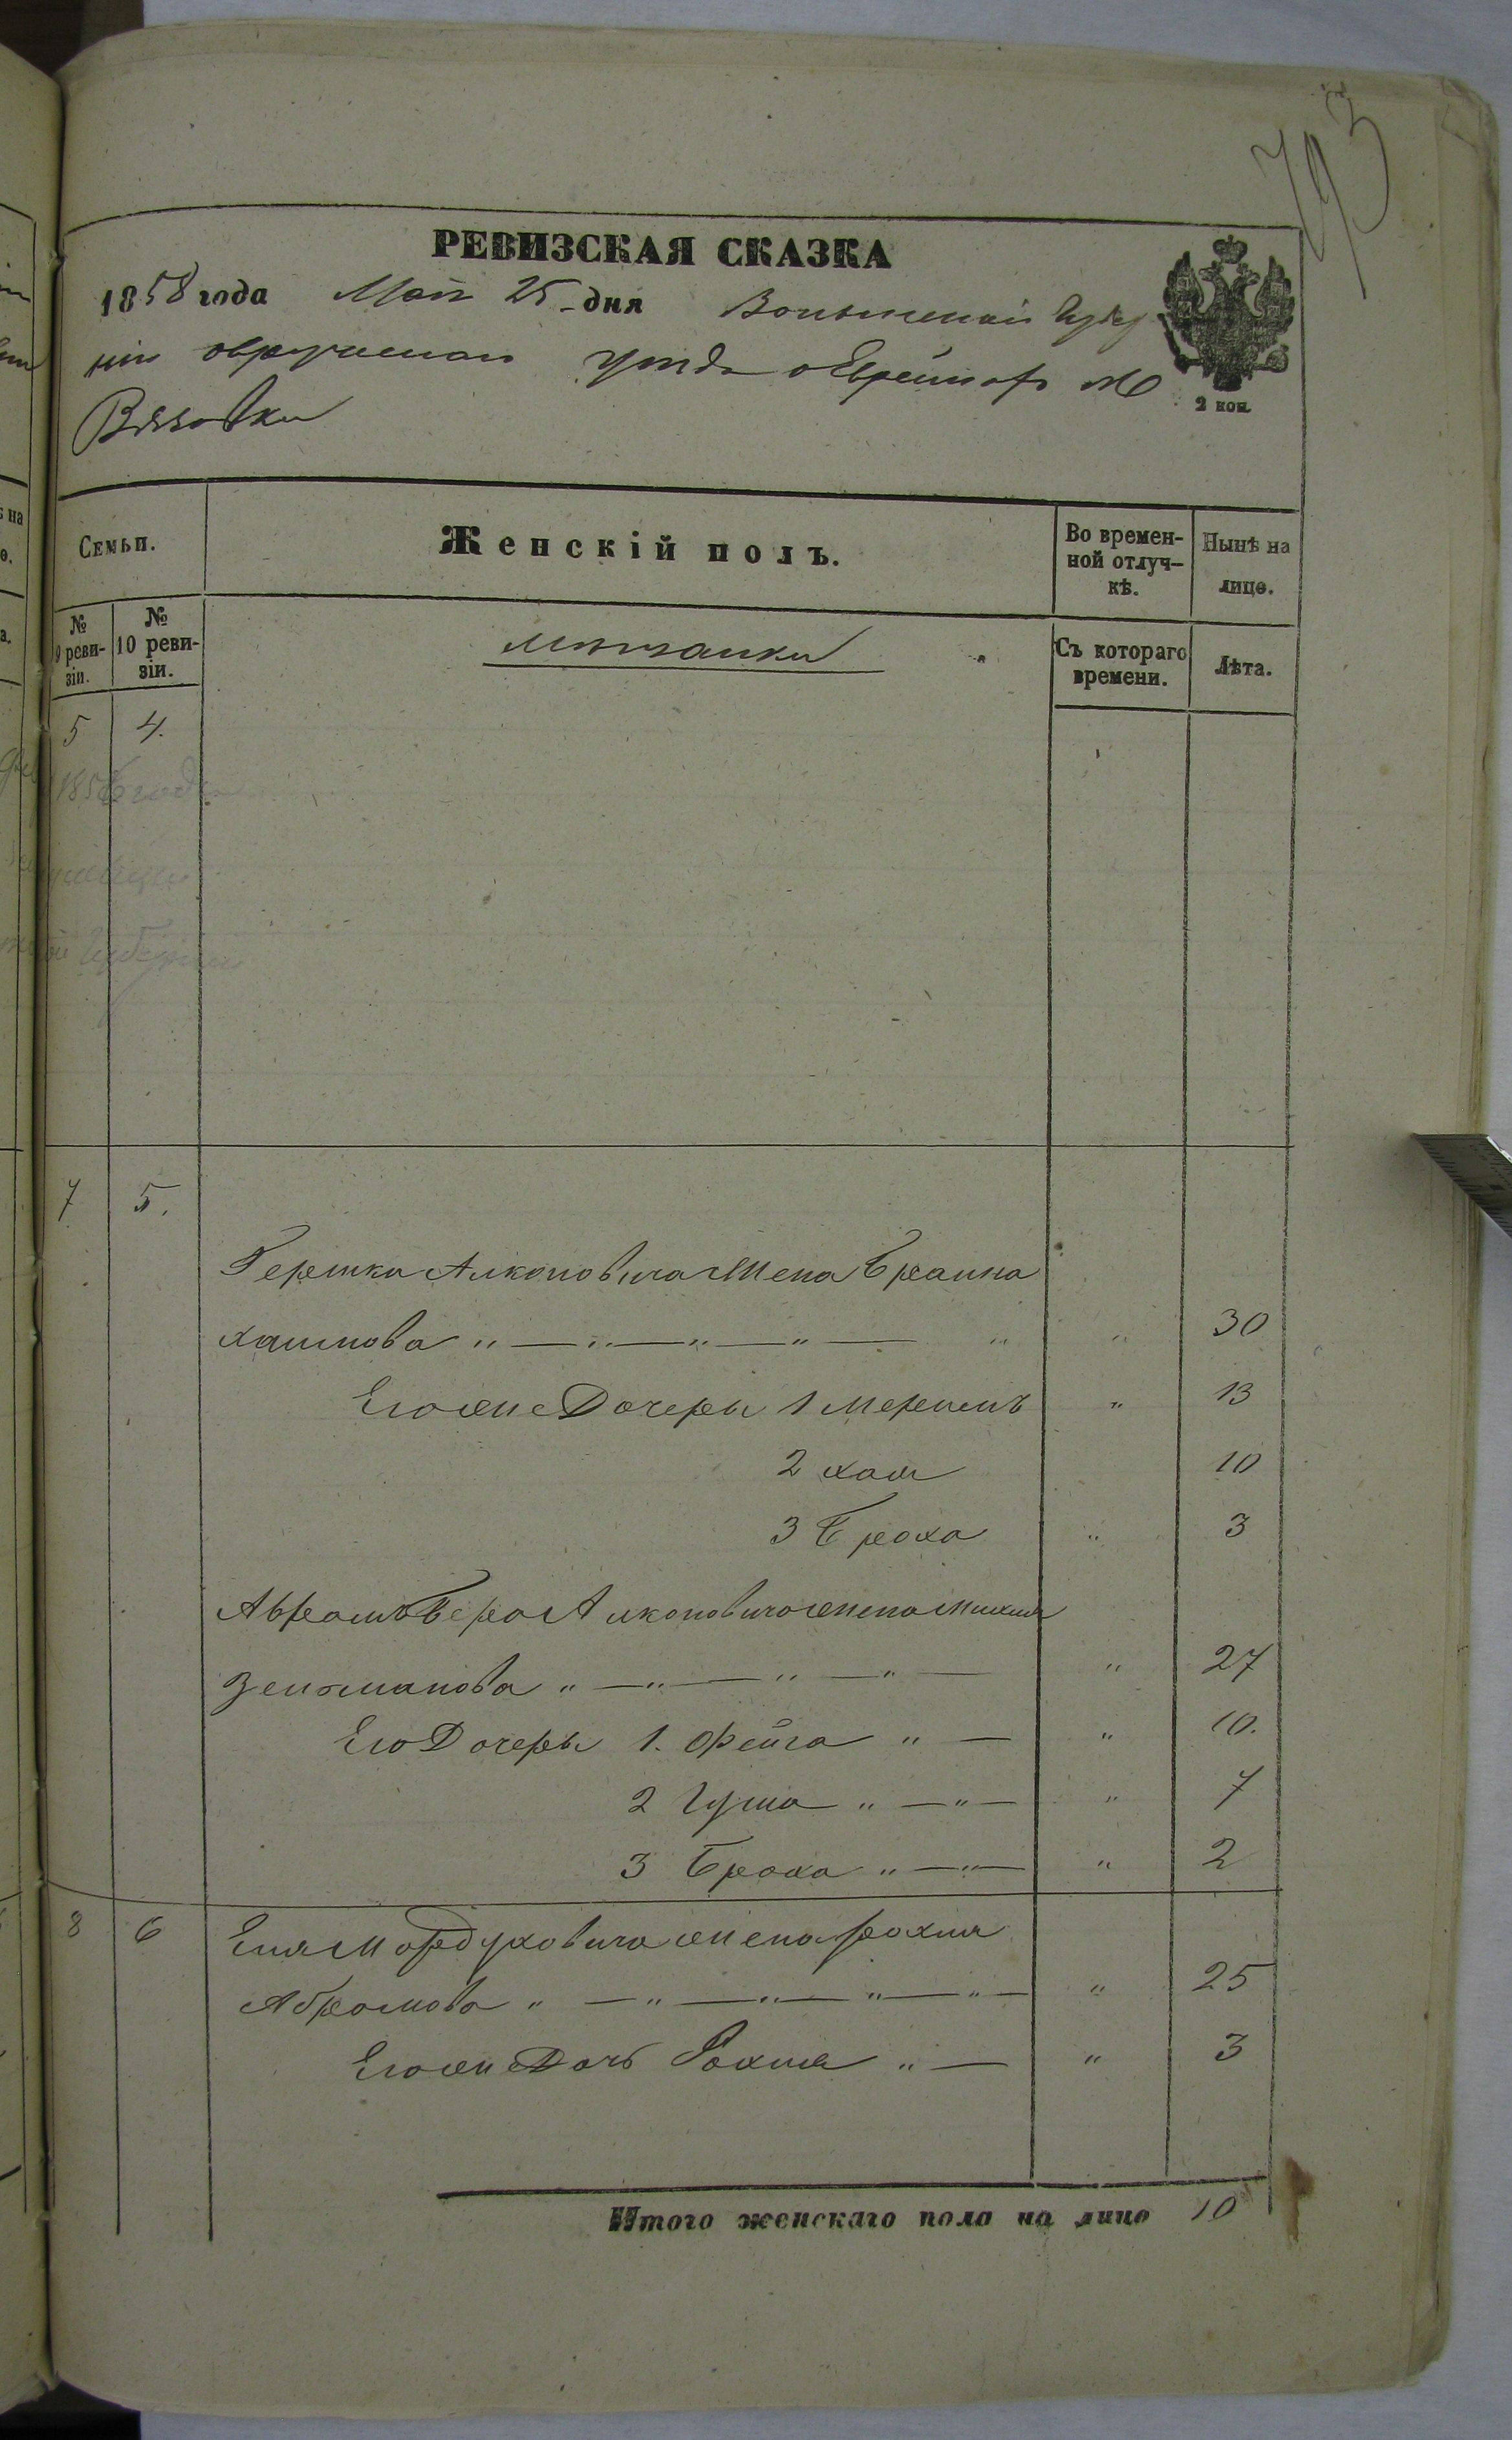 793
РЕВИЗСКАЯ СКАЗКА
1858 года Мая 25 дня Волынской Губер
ніи овручскаго уезда о Евреяхъ М
Вязовки
2 коп.
Семьи.
Женскій полъ.
Во времен-
ной отлуч-
кѣ.
Нынѣ на
лицо.
№
9 реви-
зіи.
№
10 реви-
зіи.
мещанки
Съ котораго
времени.
Лѣта.
5 4.
1856 года
Губерніи
7 5.
Гершка Алконовича Жена Браина
хаимова " — " — " — " — " " 30
Его же Дочери 1 Меримъ " 13
2 хая 10
3 Броха " 3
Абрамъ Бера Алконовича жена
Зельманова " — " — " — " — " 27
Его Дочери 1. Фейга " — " 10.
2 Гуша " — " — " 7
3 Броха " — " — " 2
8 6 Еля Мордуховича жена рохля
Абрамова " — " — " — " — " — " 25
Его же Дочь " — " 3
Итого женскаго пола на лицо 10